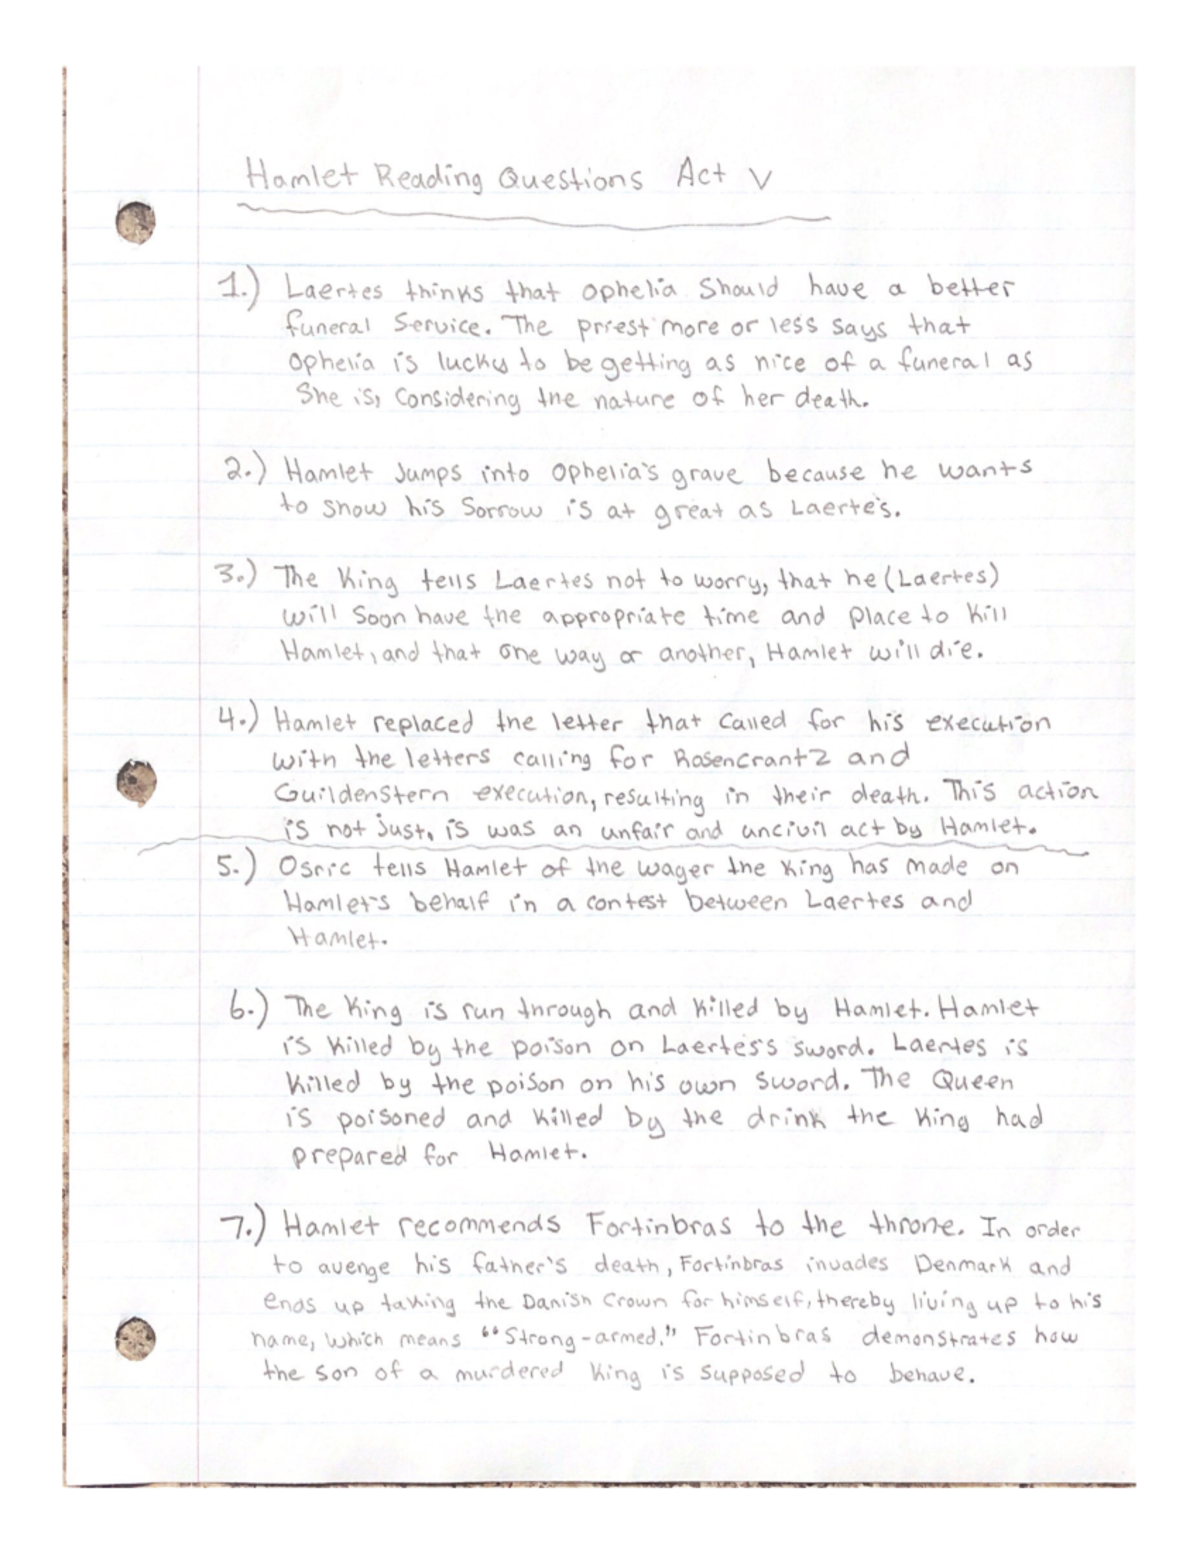 Hamlet Reading Questions Act V
1.) Laertes thinks that Ophelia Should have a better
funeral Service. The priest more or less says that
Ophelia is lucky to be getting as nice of a funeral as
She is, Considering the nature of her death.
2.) Hamlet Jumps into Ophelia's grave because he wants
to show his Sorrow is at great as Laerte's.
3.) The King tells Laertes not to worry, that he (Laertes)
will Soon have the appropriate time and Place to Kill
Hamlet, and that one way or another, Hamlet will die.
4.) Hamlet replaced the letter that Called for his execution
with the letters calling for Rosencrantz and
GuildenStern execution, resulting in their death. This action
is not just, is was an unfair and uncivil act by Hamlet.
5.) Osric tells Hamlet of the wager the King has made on
Hamlet's behalf in a contest between Laertes and
Hamlet.
6.) The King is run through and Killed by Hamlet. Hamlet
is Killed by the poison on Laertes's sword. Laertes is
Killed by the poison on his own Sword. The Queen
is poisoned and Killed by the drink the King had
prepared for Hamlet.
7.) Hamlet recommends Fortinbras to the throne. In order
to avenge his father's death, Fortinbras invades Denmark and
ends up taking the Danish Crown for himself, thereby living up to his
name, which means "Strong-armed." Fortinbras demonstrates how
the son of a murdered King is supposed to behave.